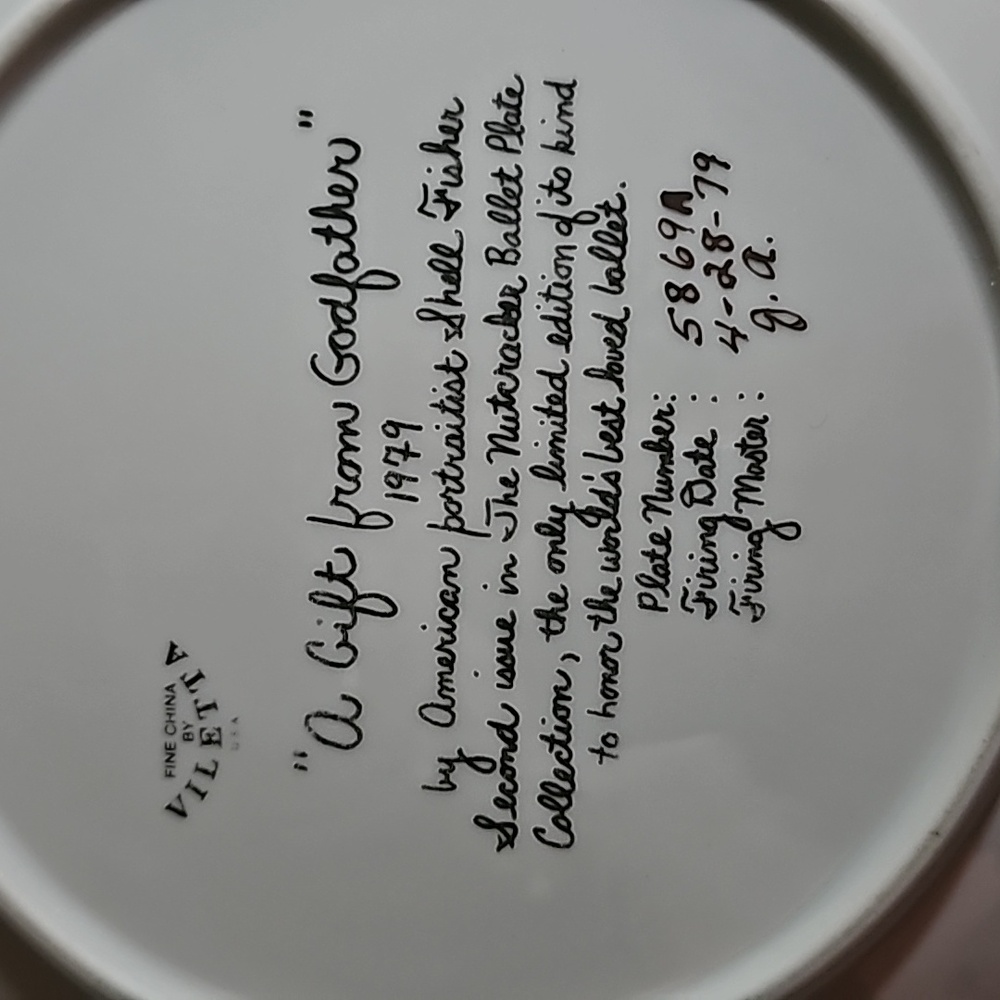 FINE CHINA
BY
VILETTA
U.S.A
"A Gift from Godfather"
1979
by American portraitist Shell Fisher
Second issue in The Nutcracker Ballet Plate
Collection, the only limited edition of its kind
to honor the world's best loved ballet.
Plate Number: 5869A
Firing Date : 4-28-79
Firing Master : g.a.